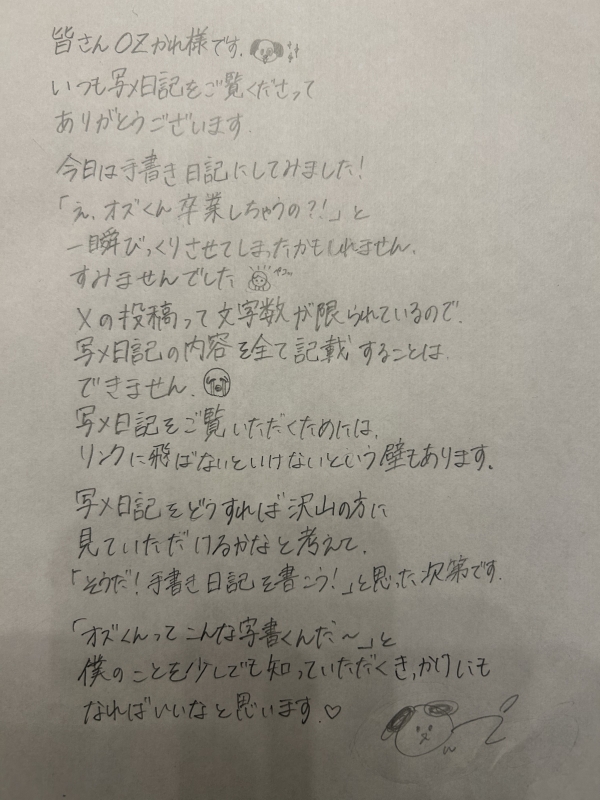 皆さんOZかれ様です.
いつも写メ日記をご覧くださって
ありがとうございます.
今日は手書き日記にしてみました!
「え、オズくん卒業しちゃうの?!」と
一瞬びっくりさせてしまったかもしれません.
すみませんでした
Xの投稿って文字数が限られているので、
写メ日記の内容を全て記載することは
できません.
写メ日記をご覧いただくためには、
リンクに飛ばないといけないという壁もあります.
写メ日記をどうすれば沢山の方に
見ていただけるかなと考えて、
「そうだ!手書き日記を書こう!」と思った次第です.
「オズくんってこんな字書くんだ〜」と
僕のことを少しでも知っていただくきっかけにも
なればいいなと思います.♡